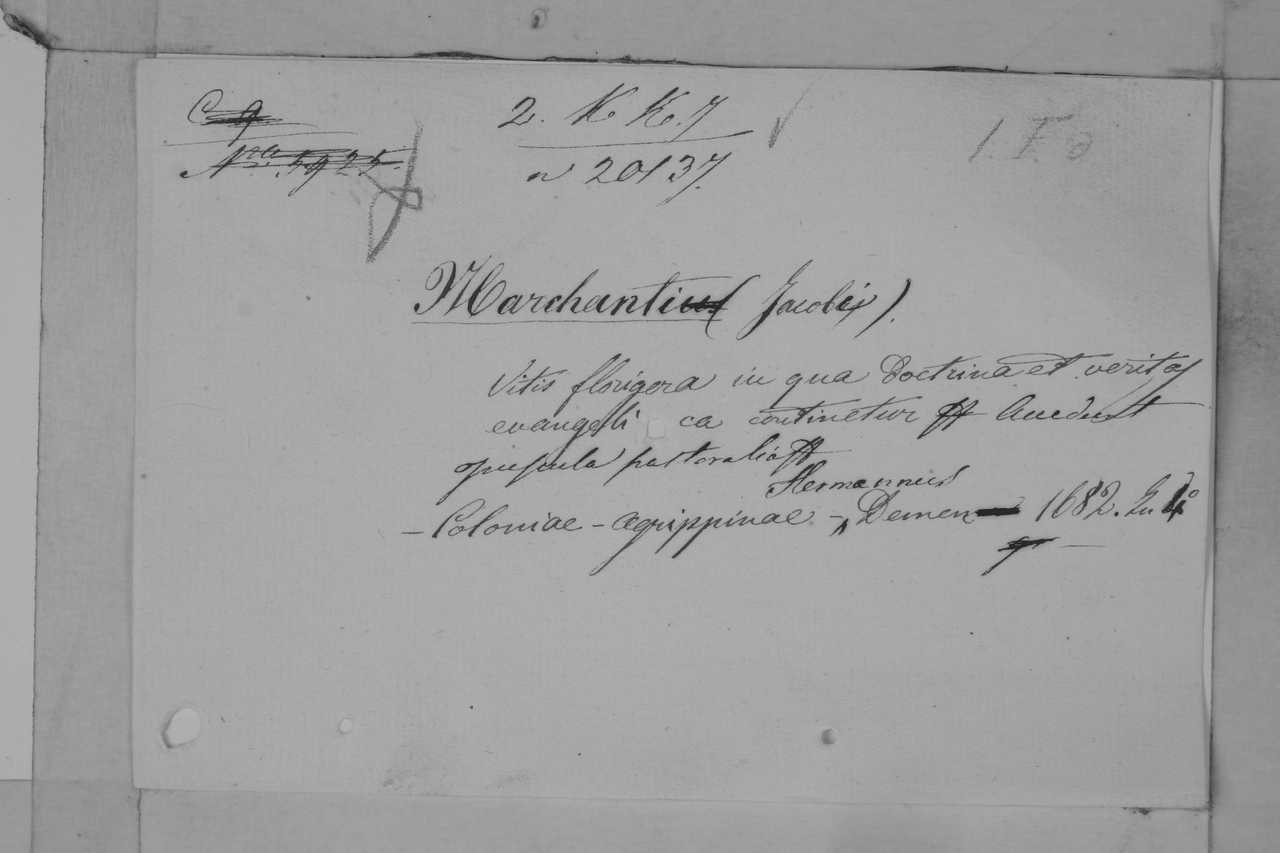 C g
Nro. 5925.
2. K K. 7
n 20137.
1. T. 8
Marchantius (Jacobi).
Vitis florigera in qua doctrina et veritas
evangeli ca continetur ff Accedunt
opuscula pastoralia ff
Hermannus
— Coloniae - Agrippinae - Demen 1682. In 4º